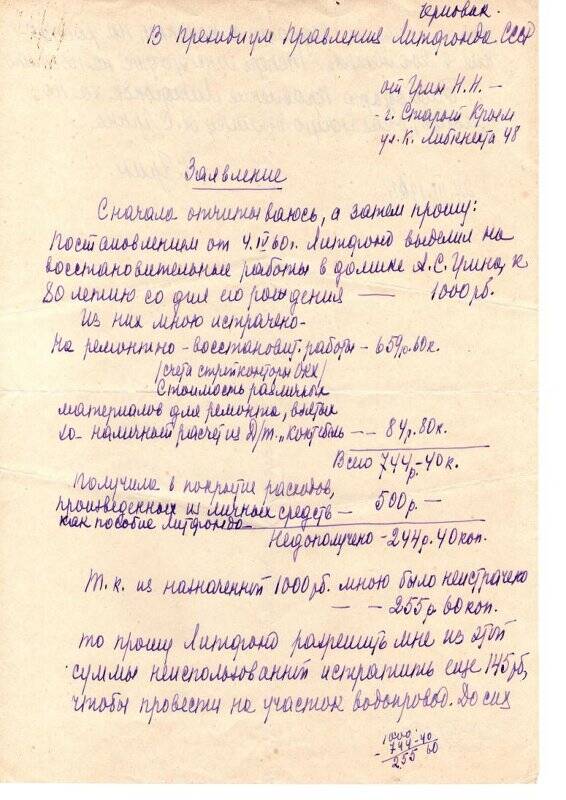 Черновик.
В Президиум Правления Литфонда СССР
от Грин Н.Н. –
г. Старый Крым
ул. К. Либкнехта 48
Заявление
Сначала отчитываюсь, а затем прошу:
Постановлением от 4.IV.60г. Литфонд выделил на
восстановительные работы в домике А.С. Грина, к
80 летию со дня его рождения — 1000 рб.
Из них мною истрачено –
На ремонтно – восстановит. работы – 659р. 60к.
/счета стройконторы ОКХ/
Стоимость различных
материалов для ремонта, взятых
за наличный расчет из Д/т. „Коктебль" – – 84р. 80к.
Всего 744р – 40к.
Получила в покрытие расходов,
произведенных из личных средств — 500р. —
как пособие Литфонда –
Недополучено – 244р. 40коп.
Т.к. из назначенных 1000рб. мною было неистрачено
— — 255р 60коп.
то прошу Литфонд разрешить мне из этой
суммы неиспользованной истратить еще 145рб,
чтобы провести на участок водопровод. До сих
1000
- 744-40
255 60